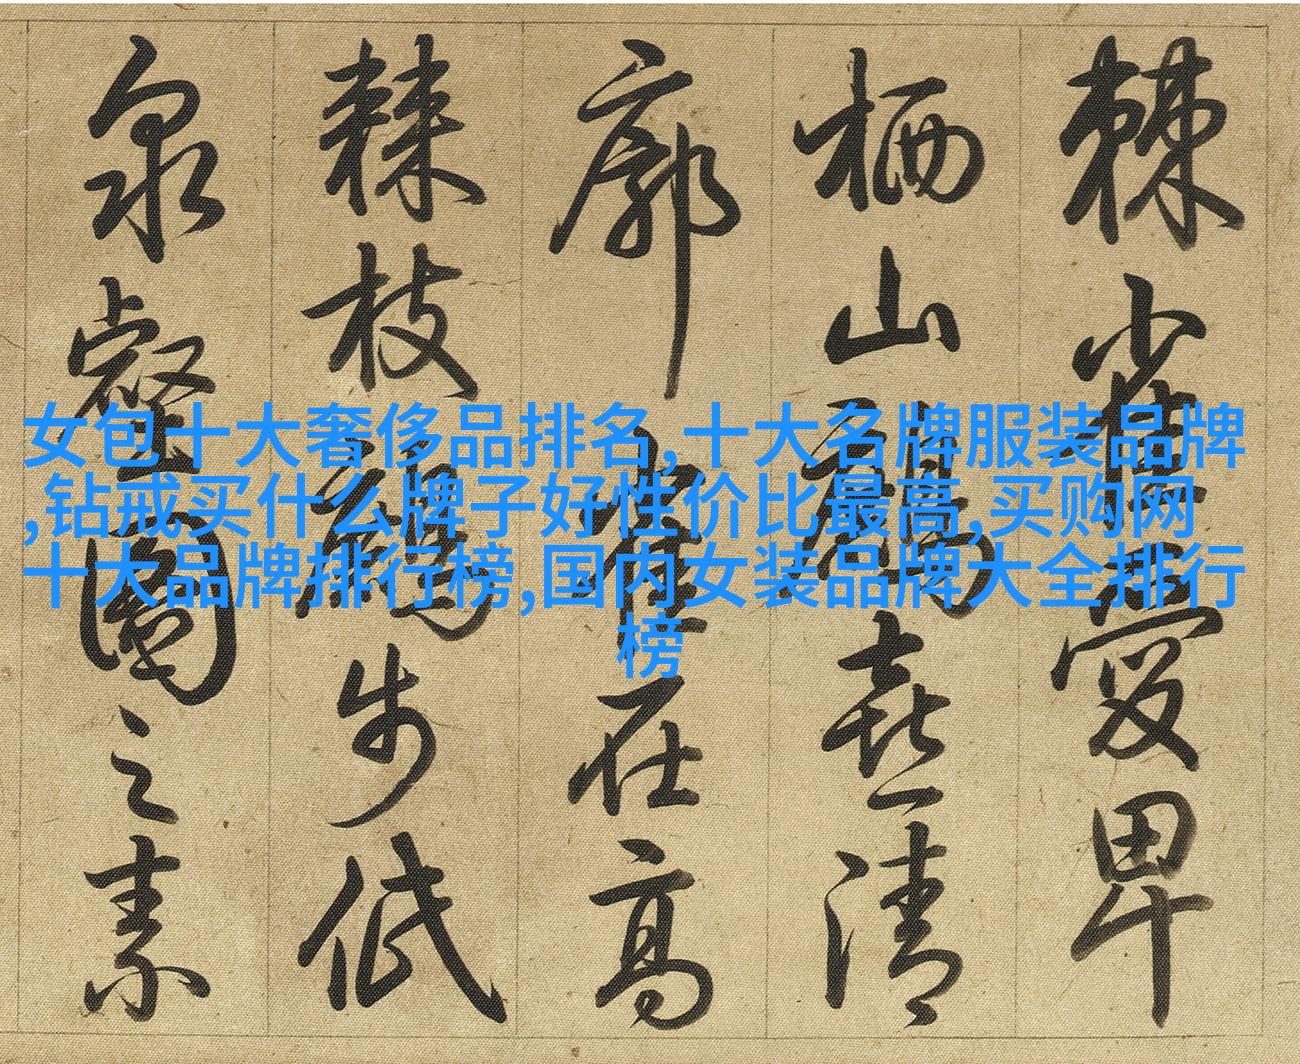 棘小愛卑
栖山喜清
廓在高
棘枝步低
泉壑園之素
女包十大奢侈品排名,十大名牌服装品牌
,钻戒买什么牌子好性价比最高,买购网
十大品牌排行榜,国内女装品牌大全排行
榜